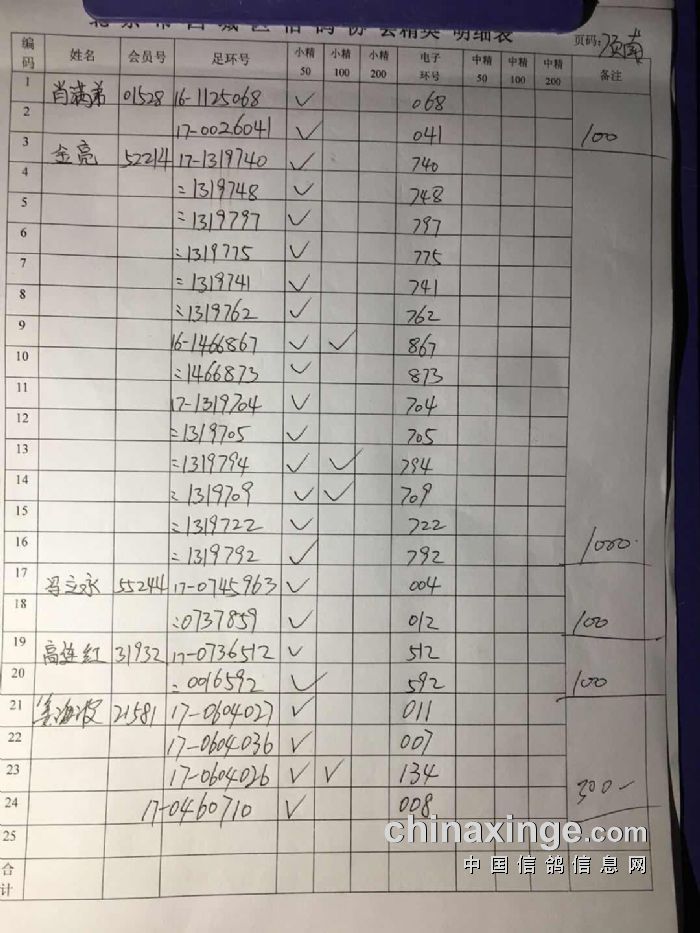 北京市西城区信鸽协会精英 明细表
页码:
编码 姓名 会员号 足环号 小精50 小精100 小精200 电子环号 中精50 中精100 中精200 备注
1 肖满弟 01528 16-1125068 ✓ 068
2 17-0026041 ✓ 041 100
3 金亮 52214 17-1319740 ✓ 740
4 :1319748 ✓ 748
5 :1319797 ✓ 797
6 :1319775 ✓ 775
7 :1319741 ✓ 741
8 :1319762 ✓ 762
9 16-1466867 ✓ ✓ 867
10 :1466873 ✓ 873
11 17-1319704 ✓ 704
12 :1319705 ✓ 705
13 :1319794 ✓ ✓ 794
14 :1319709 ✓ ✓ 709
15 :1319722 ✓ 722
16 :1319792 ✓ 792 1000.
17 冯立永 55244 17-0745963 ✓ 004
18 :0737859 ✓ 012 100
19 高连红 31932 17-0736512 ✓ 512
20 :0016592 ✓ 592 100
21 海波 21581 17-0604027 ✓ 011
22 17-0604036 ✓ 007
23 17-0604026 ✓ ✓ 134 300
24 17-0460710 ✓ 008
25
合计
chinaxinge.com
中国信鸽信息网